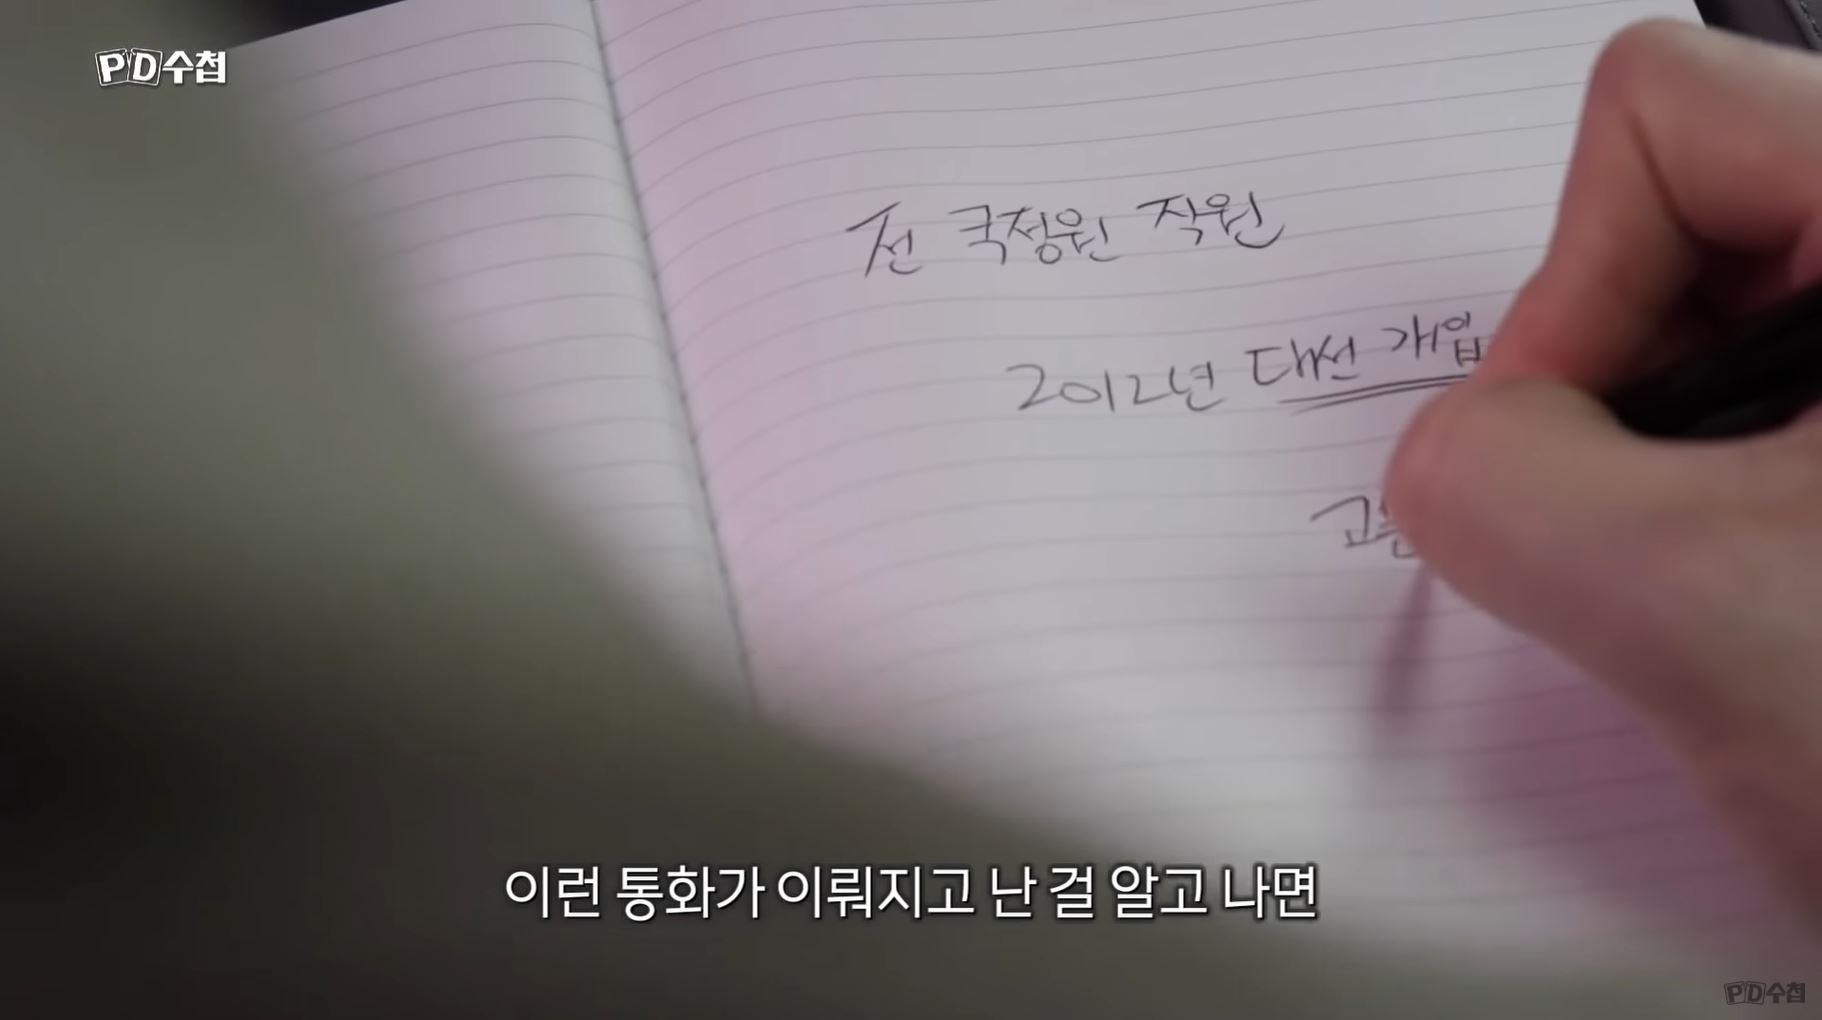 PD수첩
전 국정원 직원
2012년 대선 개입
이런 통화가 이뤄지고 난 걸 알고 나면
PD수첩